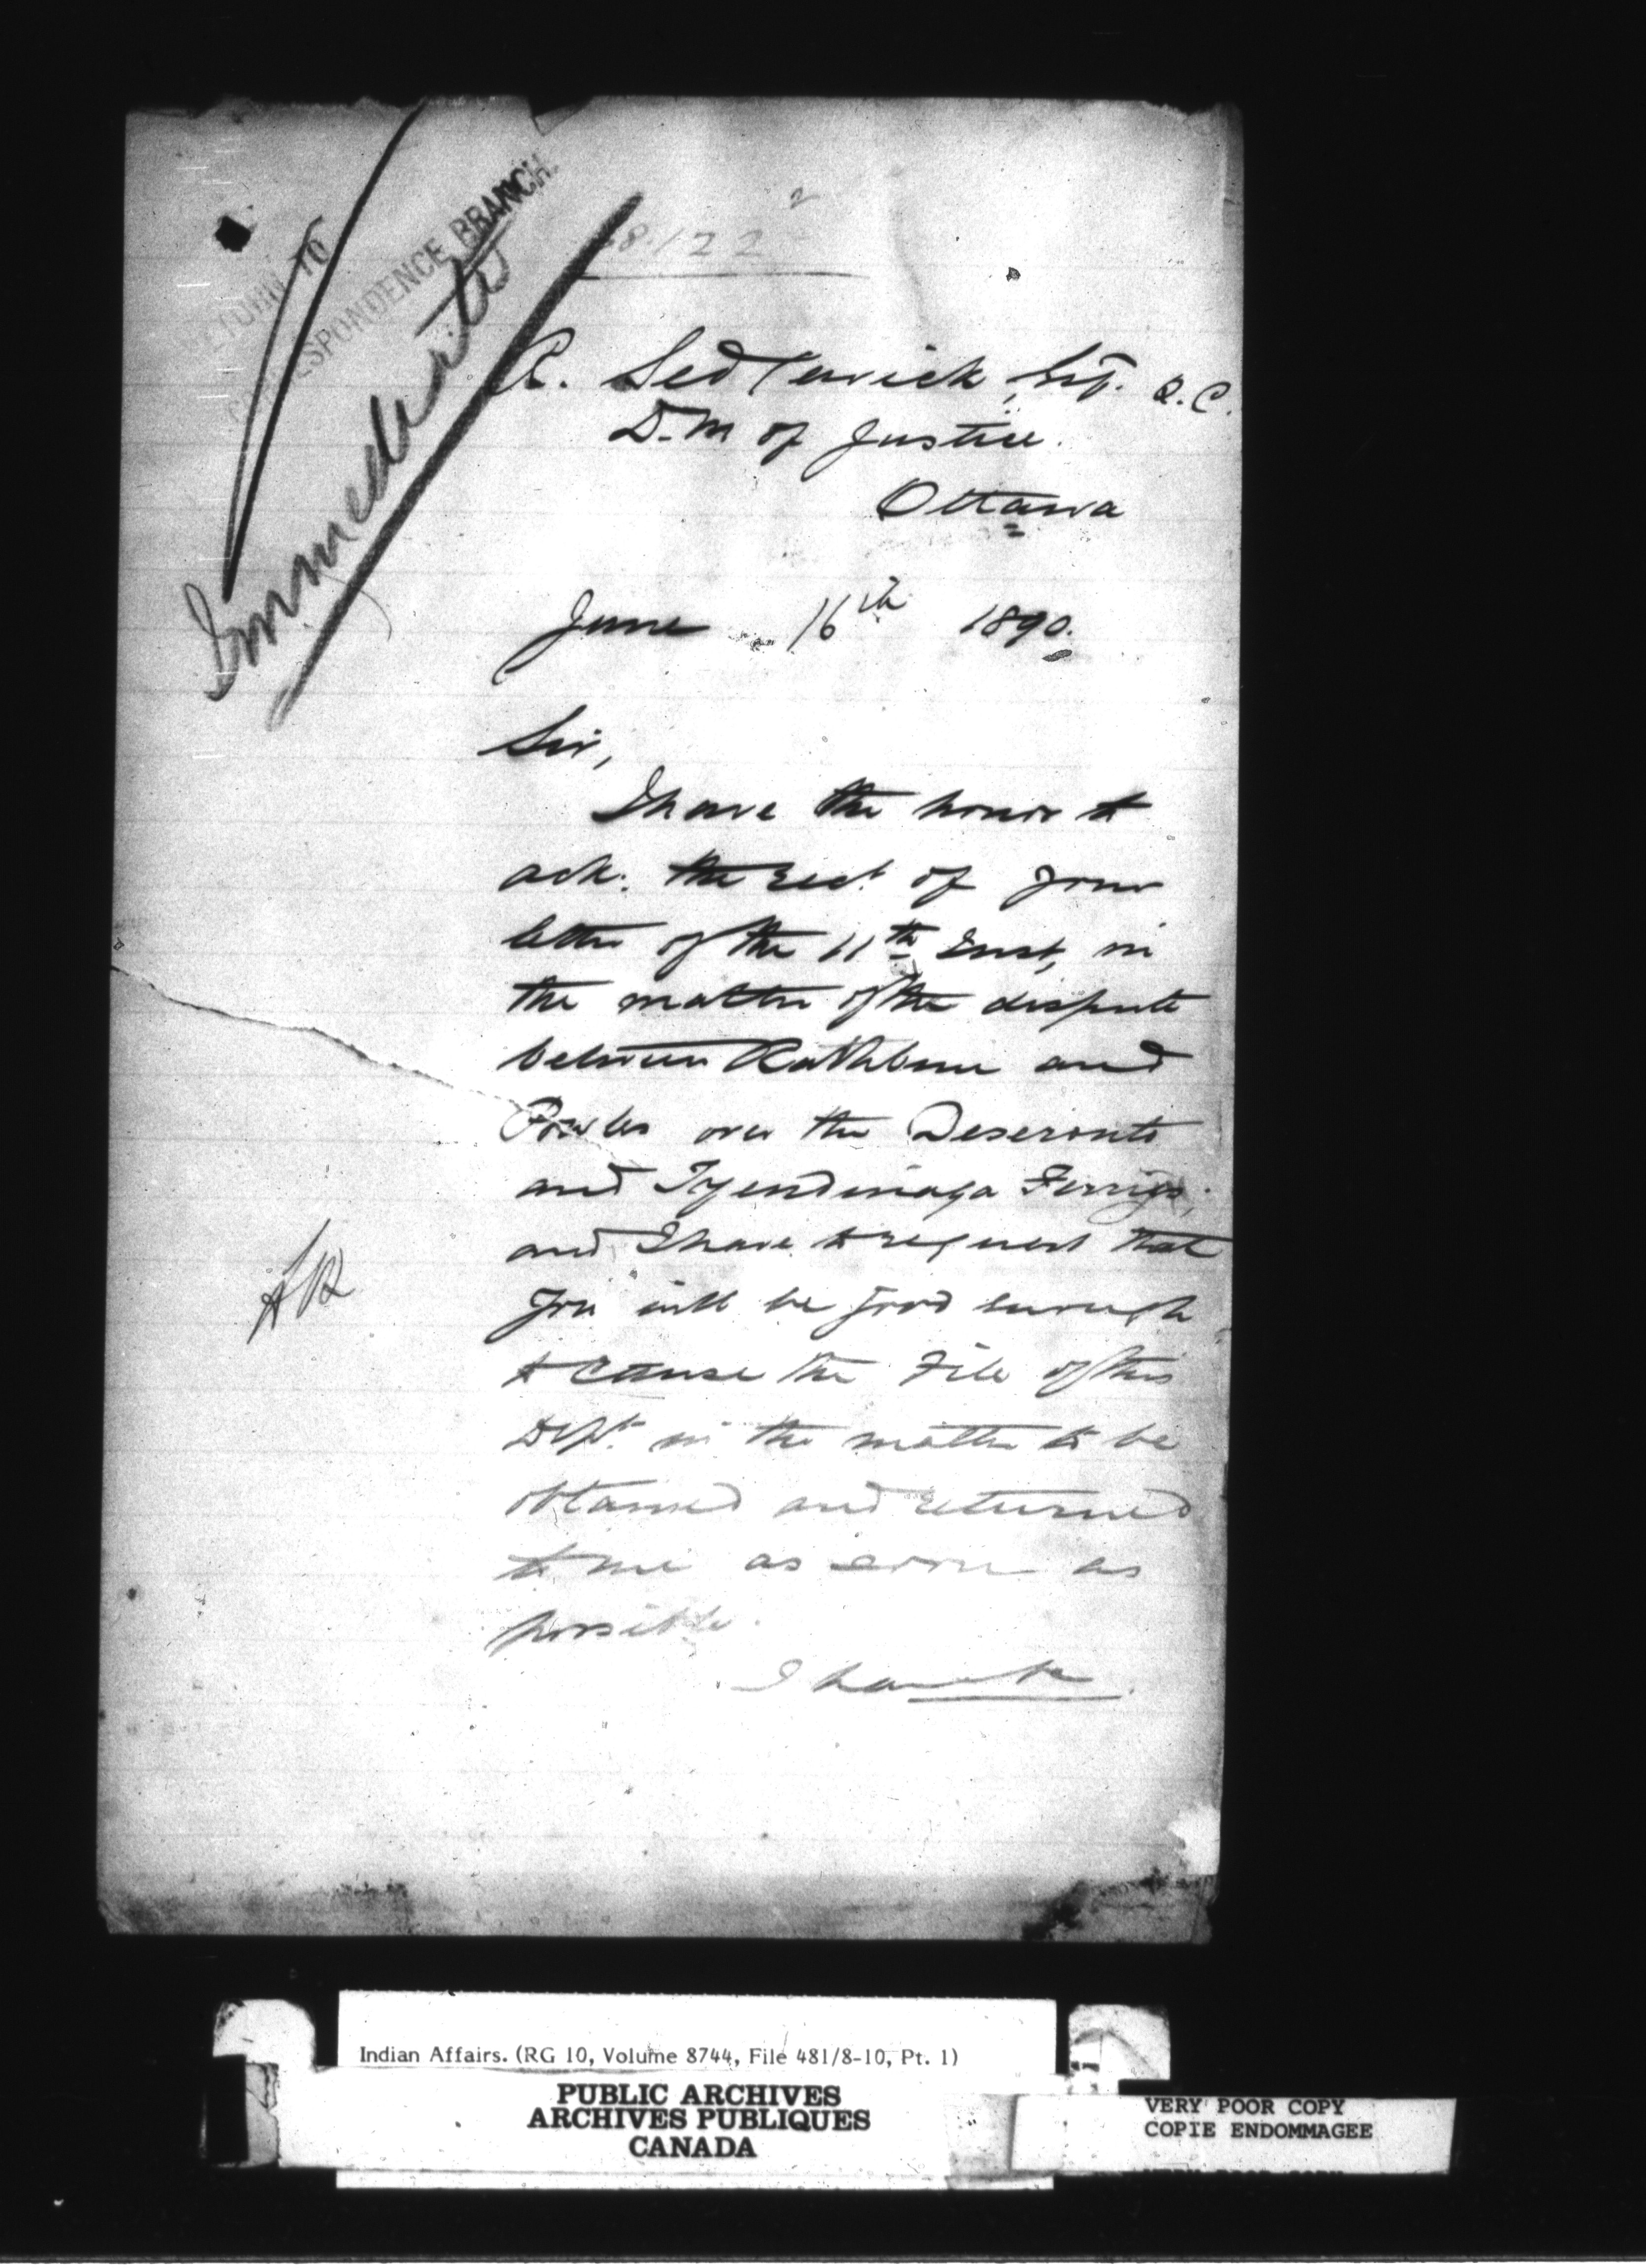 RETURN TO
CORRESPONDENCE BRANCH.
Immediate
38.122
R. Sedgewick, Esq. Q.C.
D.M of Justice.
Ottawa
June 16th 1890.
Sir,
I have the honor to
ack. the rect of your
letter of the 11th Inst, in
the matter of the dispute
between Rathbun and
Powles over the Deseronto
and Tyendinaga Ferrys;
and I have to request that
you will be good enough
to cause the File of this
Dept. in the matter to be
obtained and returned
to me as soon as
possible.
I have &c
Indian Affairs. (RG 10, Volume 8744, File 481/8-10, Pt. 1)
PUBLIC ARCHIVES
ARCHIVES PUBLIQUES
CANADA
VERY POOR COPY
COPIE ENDOMMAGEE